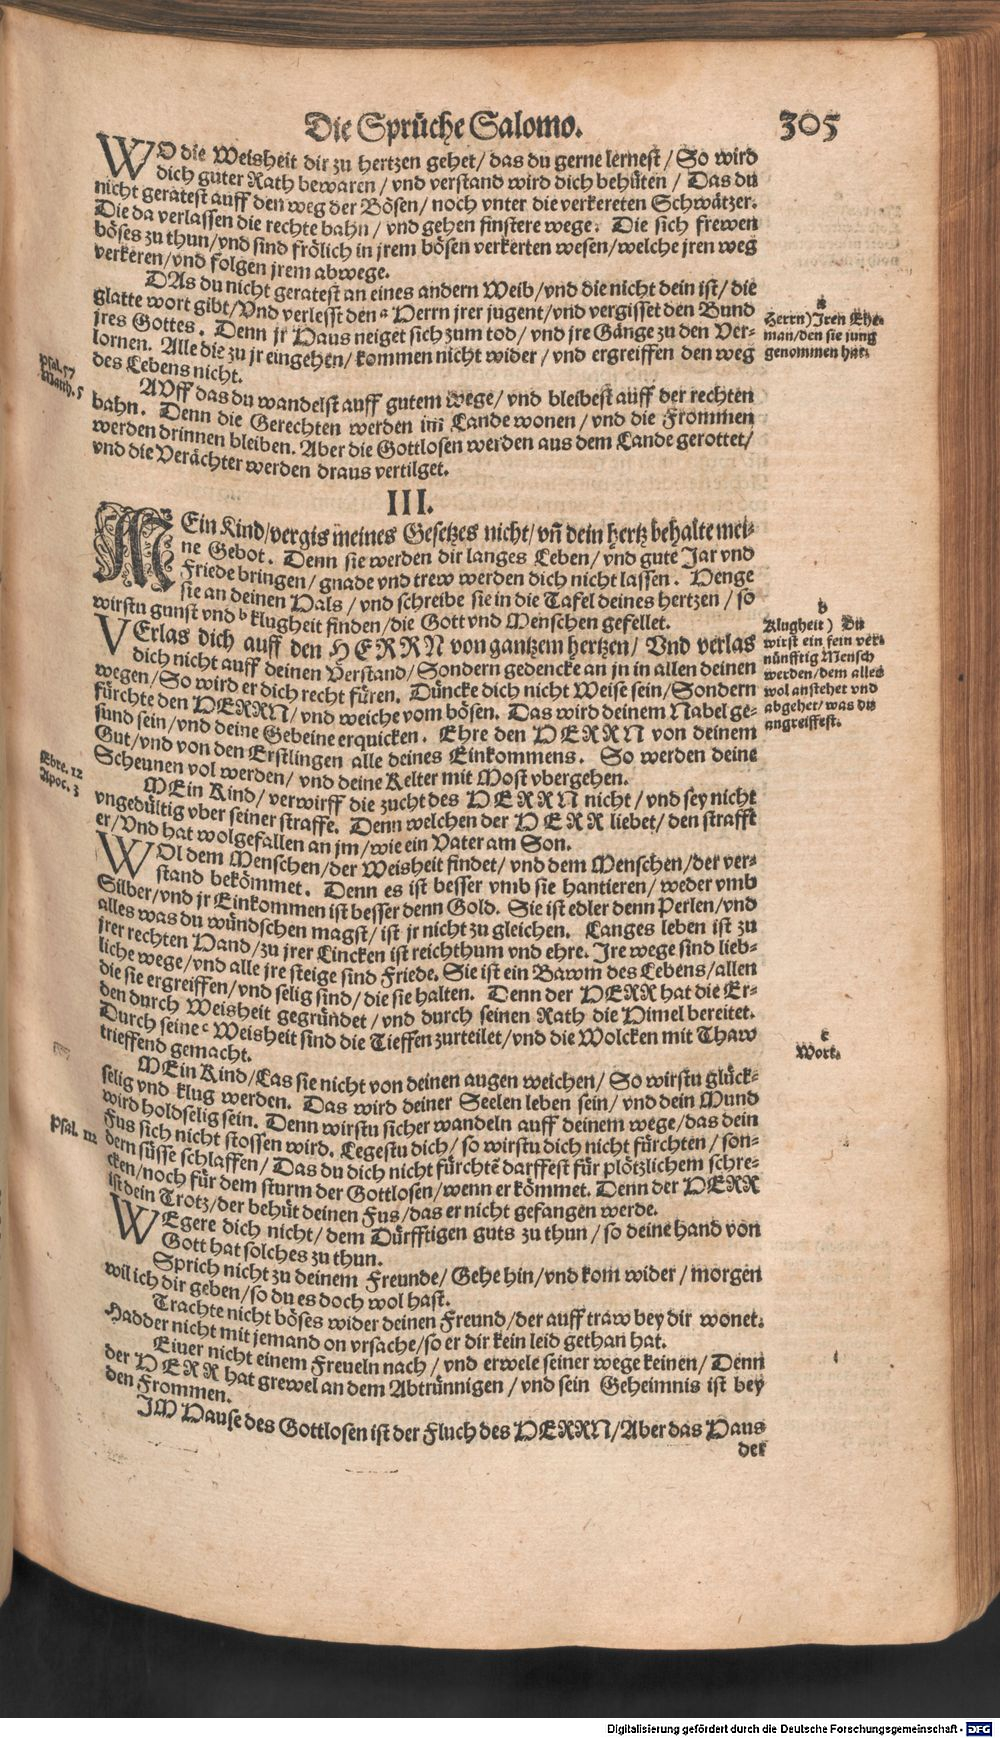 Die Sprüche Salomo. 305
WO die Weisheit dir zu hertzen gehet/ das du gerne lernest/ So wird
dich guter Rath bewaren/ vnd verstand wird dich behüten/ Das du
nicht geratest auff den weg der Bösen/ noch vnter die verkereten Schwätzer.
Die da verlassen die rechte bahn/ vnd gehen finstere wege. Die sich frewen
böses zu thun/vnd sind frölich in jrem bösen verkerten wesen/welche jren weg
verkeren/vnd folgen jrem abwege.
DAs du nicht geratest an eines andern Weib/vnd die nicht dein ist/ die
glatte wort gibt/Vnd verlesst den a Herrn jrer jugent/vnd vergisset den Bund
jres Gottes. Denn jr Haus neiget sich zum tod/ vnd jre Gänge zu den Ver-
lornen. Alle die zu jr eingehen/ kommen nicht wider/ vnd ergreiffen den weg
des Lebens nicht.
a
Herrn) Jren Ehe-
man/den sie jung
genommen hat.
Psal. 37
Matth. 5
AVff das du wandelst auff gutem wege/ vnd bleibest auff der rechten
bahn. Denn die Gerechten werden im Lande wonen/ vnd die Frommen
werden drinnen bleiben. Aber die Gottlosen werden aus dem Lande gerottet/
vnd die Verächter werden draus vertilget.
III.
MEin Kind/vergis meines Gesetzes nicht/ vñ dein hertz behalte mei-
ne Gebot. Denn sie werden dir langes Leben/ vnd gute Jar vnd
Friede bringen/ gnade vnd trew werden dich nicht lassen. Henge
sie an deinen Hals/ vnd schreibe sie in die Tafel deines hertzen/ so
wirstu gunst vnd b klugheit finden/die Gott vnd Menschen gefellet.
VErlas dich auff den HERRN von gantzem hertzen/ Vnd verlas
dich nicht auff deinen Verstand/ Sondern gedencke an jn in allen deinen
wegen/ So wird er dich recht füren. Düncke dich nicht Weise sein/ Sondern
fürchte den HERRN/ vnd weiche vom bösen. Das wird deinem Nabel ge-
sund sein/vnd deine Gebeine erquicken. Ehre den HERRN von deinem
Gut/vnd von den Erstlingen alle deines Einkommens. So werden deine
Scheunen vol werden/ vnd deine Kelter mit Most vbergehen.
b
Klugheit) Du
wirst ein fein ver-
nünfftig Mensch
werden/dem alles
wol anstehet vnd
abgehet/was du
angreiffest.
Ebre. 12
Apoc. 3
MEin Kind/ verwirff die zucht des HERRN nicht/ vnd sey nicht
vngedültig vber seiner straffe. Denn welchen der HERR liebet/ den strafft
er/Vnd hat wolgefallen an jm/wie ein Vater am Son.
WOl dem Menschen/der Weisheit findet/ vnd dem Menschen/der ver-
stand bekömmet. Denn es ist besser vmb sie hantieren/ weder vmb
Silber/vnd jr Einkommen ist besser denn Gold. Sie ist edler denn Perlen/vnd
alles was du wündschen magst/ ist jr nicht zu gleichen. Langes leben ist zu
jrer rechten Hand/zu jrer Lincken ist reichthum vnd ehre. Jre wege sind lieb-
liche wege/vnd alle jre steige sind Friede. Sie ist ein Bawm des Lebens/allen
die sie ergreiffen/vnd selig sind/ die sie halten. Denn der HERR hat die Er-
den durch Weisheit gegründet/ vnd durch seinen Rath die Himel bereitet.
Durch seine c Weisheit sind die Tieffen zurteilet/vnd die Wolcken mit Thaw
trieffend gemacht.
c
Wort.
MEin Kind/Las sie nicht von deinen augen weichen/ So wirstu glück-
selig vnd klug werden. Das wird deiner Seelen leben sein/ vnd dein Mund
wird holdselig sein. Denn wirstu sicher wandeln auff deinem wege/das dein
Fus sich nicht stossen wird. Legestu dich/ so wirstu dich nicht fürchten/ son-
dern süsse schlaffen/ Das du dich nicht fürchtē darffest für plötzlichem schre-
cken/noch für dem sturm der Gottlosen/wenn er kömmet. Denn der HERR
ist dein Trotz/der behüt deinen Fus/das er nicht gefangen werde.
Psal. 112
WEgere dich nicht/ dem Dürfftigen guts zu thun/ so deine hand von
Gott hat solches zu thun.
Sprich nicht zu deinem Freunde/ Gehe hin/vnd kom wider/ morgen
wil ich dir geben/so du es doch wol hast.
Trachte nicht böses wider deinen Freund/der auff traw bey dir wonet.
Hadder nicht mit jemand on vrsache/so er dir kein leid gethan hat.
Eiuer nicht einem Freueln nach/ vnd erwele seiner wege keinen/ Denn
der HERR hat grewel an dem Abtrünnigen/ vnd sein Geheimnis ist bey
den Frommen.
JM Hause des Gottlosen ist der Fluch des HERRN/Aber das Haus
der
Digitalisierung gefördert durch die Deutsche Forschungsgemeinschaft - DFG